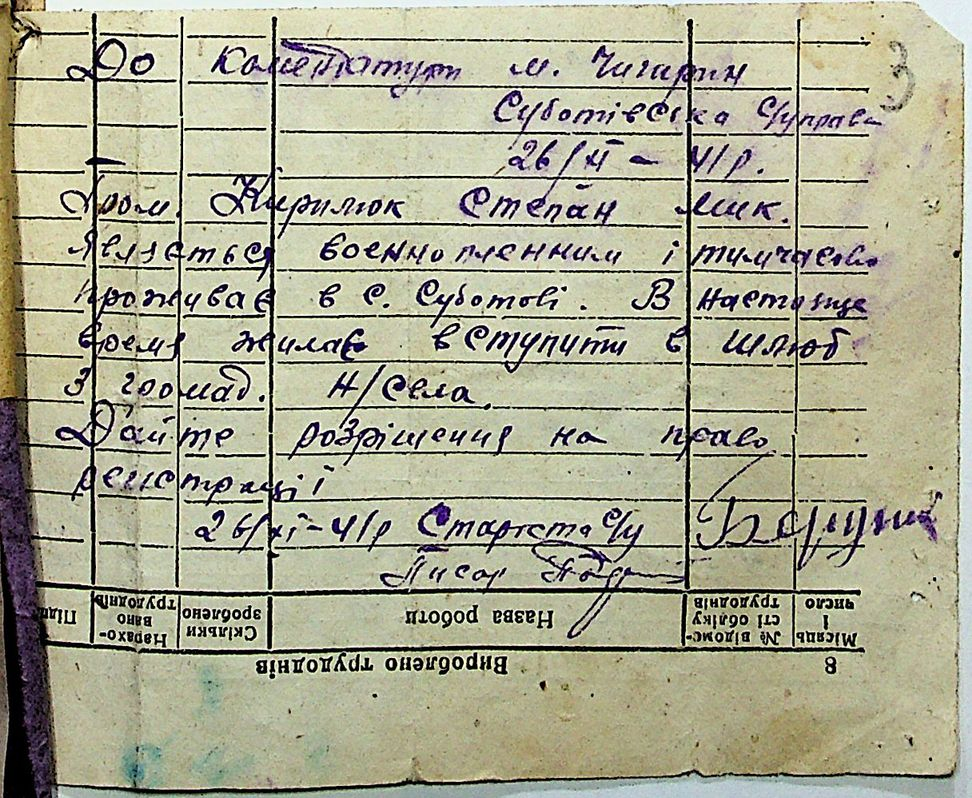 3
До комендатури м. Чигирин
Суботівська с/управа
26/XI – 41р.
Гром. Кирилюк Степан Мик.
являється военнопленним і тимчасово
проживає в с. Суботові. В настояще
время жилає вступити в шлюб
з громад. н/села.
Дайте розрішення на право
регистрації
26/XI-41р Староста с/у
Писар
Місяць і число
№ відомості обліку трудоднів
Назва роботи
Скільки зроблено
Нараховано трудоднів
Підп
8 Вироблено трудоднів